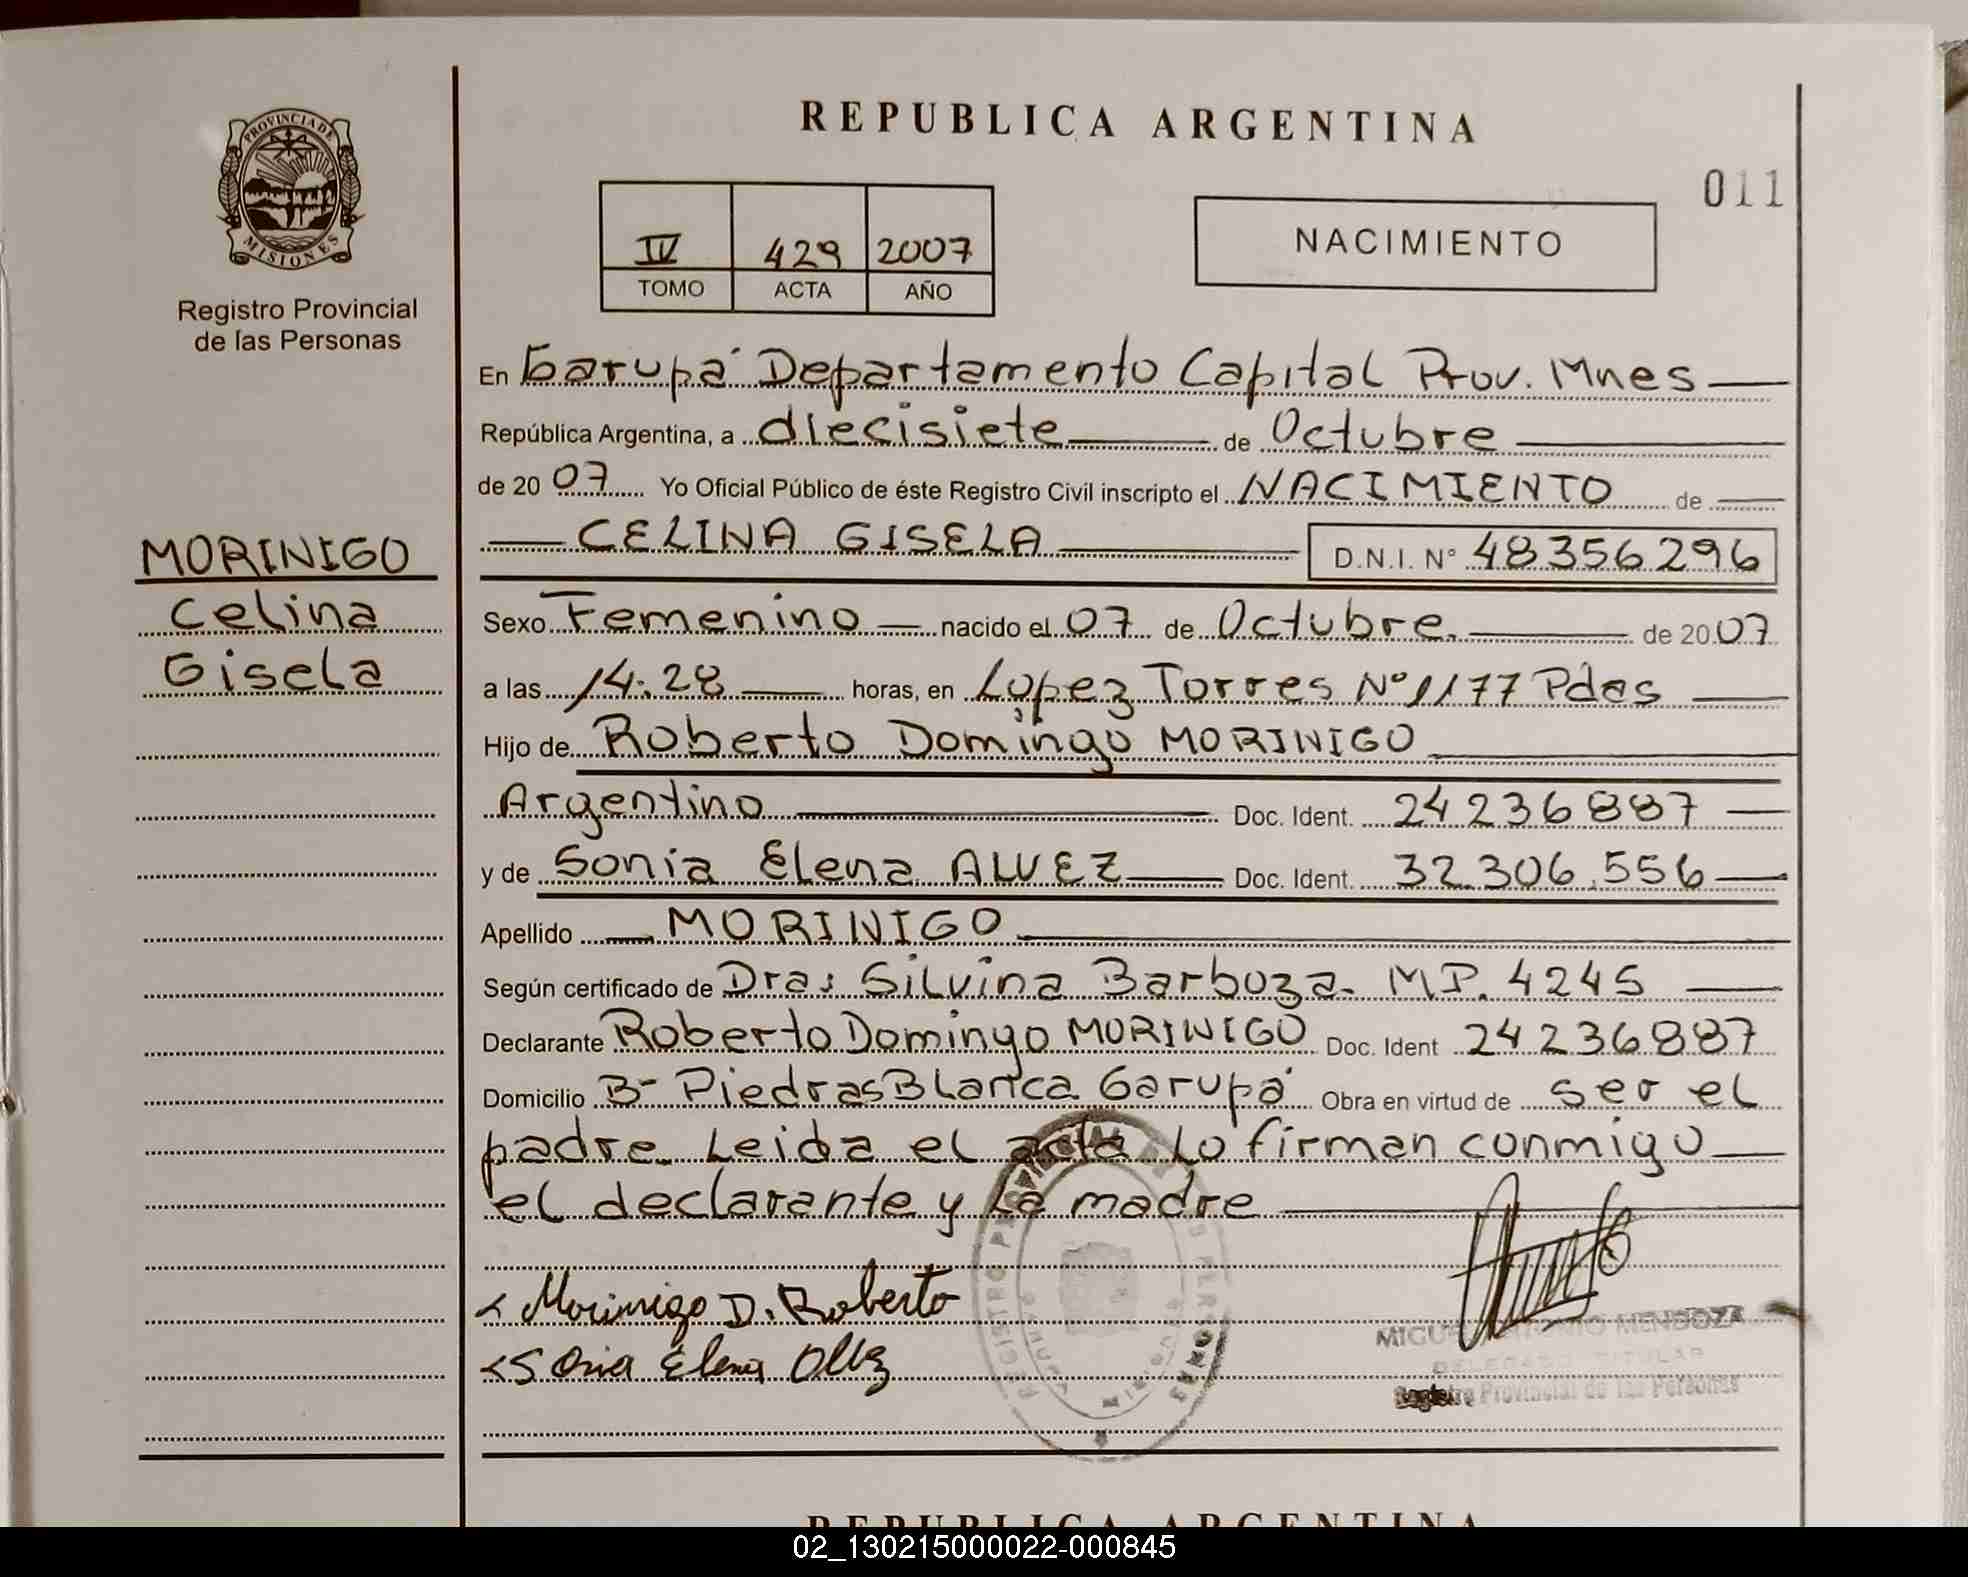 REPUBLICA ARGENTINA
011
PROVINCIA DE
MISIONES
Registro Provincial
de las Personas
IV 429 2007
TOMO ACTA AÑO
NACIMIENTO
En Garupá Departamento Capital Prov. Mnes
República Argentina, a diecisiete de Octubre
de 2007 Yo Oficial Público de éste Registro Civil inscripto el NACIMIENTO de
CELINA GISELA D.N.I. N° 48356296
MORINIGO
Celina
Gisela
Sexo Femenino nacido el 07 de Octubre. de 20.07
a las 14:28 horas, en Lopez Torres N° 1177 Pdas
Hijo de Roberto Domingo MORINIGO
Argentino Doc. Ident. 24236887
y de Sonia Elena ALVEZ Doc. Ident. 32.306.556
Apellido MORINIGO
Según certificado de Dra: Silvina Barboza. MP. 4245
Declarante Roberto Domingo MORINIGO Doc. Ident 24236887
Domicilio B- Piedras Blanca Garupá Obra en virtud de ser el
padre. Leida el acta lo firman conmigo
el declarante y la madre
Morinigo D. Roberto
Sonia Elena
MENDOZA
DELEGADO TITULAR
Registro Provincial de las Personas
REPUBLICA ARGENTINA
02_130215000022-000845